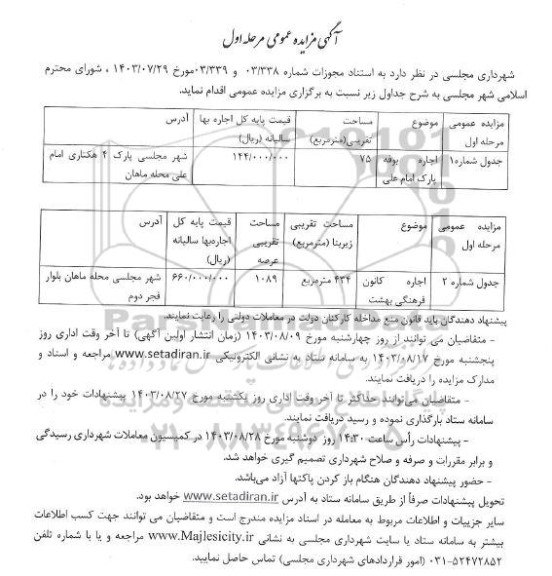 آگهی مزایده عمومی مرحله اول
شهرداری مجلسی در نظر دارد به استناد مجوزات شماره ۰۳/۳۳۸ و ۰۳/۳۳۹مورخ ۱۴۰۳/۰۷/۲۹ ، شورای محترم
اسلامی شهر مجلسی به شرح جداول زیر نسبت به برگزاری مزایده عمومی اقدام نماید.
مزایده عمومی مرحله اول
موضوع
مساحت تقریبی(مترمربع)
قیمت پایه کل اجاره بها سالیانه (ریال)
آدرس
جدول شماره۱
اجاره بوفه پارک امام علی
۷۵
۱۴۴/۰۰۰/۰۰۰
شهر مجلسی پارک ۴ هکتاری امام علی محله ماهان
مزایده عمومی مرحله اول
موضوع
مساحت تقریبی زیربنا (مترمربع)
مساحت تقریبی عرصه
قیمت پایه کل اجاره‌بها سالیانه (ریال)
آدرس
جدول شماره ۲
اجاره کانون فرهنگی بهشت
۴۳۴ مترمربع
۱۰۸۹
۶۶۰/۰۰۰/۰۰۰
شهر مجلسی محله ماهان بلوار فجر دوم
پیشنهاد دهندگان باید قانون منع مداخله کارکنان دولت در معاملات دولتی را رعایت نمایند.
- متقاضیان می توانند از روز چهارشنبه مورخ ۱۴۰۳/۰۸/۰۹ (زمان انتشار اولین آگهی) تا آخر وقت اداری روز
پنجشنبه مورخ ۱۴۰۳/۰۸/۱۷ به سامانه ستاد به نشانی الکترونیکی www.setadiran.ir مراجعه و اسناد و
مدارک مزایده را دریافت نمایند.
- متقاضیان می‌توانند حداکثر تا آخر وقت اداری روز یکشنبه مورخ ۱۴۰۳/۰۸/۲۷ پیشنهادات خود را در
سامانه ستاد بارگذاری نموده و رسید دریافت نمایند.
- پیشنهادات رأس ساعت ۱۴:۳۰ روز دوشنبه مورخ ۱۴۰۳/۰۸/۲۸ در کمیسیون معاملات شهرداری رسیدگی
و برابر مقررات و صرفه و صلاح شهرداری تصمیم گیری خواهد شد.
- حضور پیشنهاد دهندگان هنگام باز کردن پاکتها آزاد می‌باشد.
تحویل پیشنهادات صرفاً از طریق سامانه ستاد به آدرس www.setadiran.ir خواهد بود.
سایر جزییات و اطلاعات مربوط به معامله در اسناد مزایده مندرج است و متقاضیان می توانند جهت کسب اطلاعات
بیشتر به سامانه ستاد یا سایت شهرداری مجلسی به نشانی www.Majlesicity.ir مراجعه و یا با شماره تلفن
۰۳۱-۵۲۴۷۲۸۵۲ (امور قراردادهای شهرداری مجلسی) تماس حاصل نمایید.